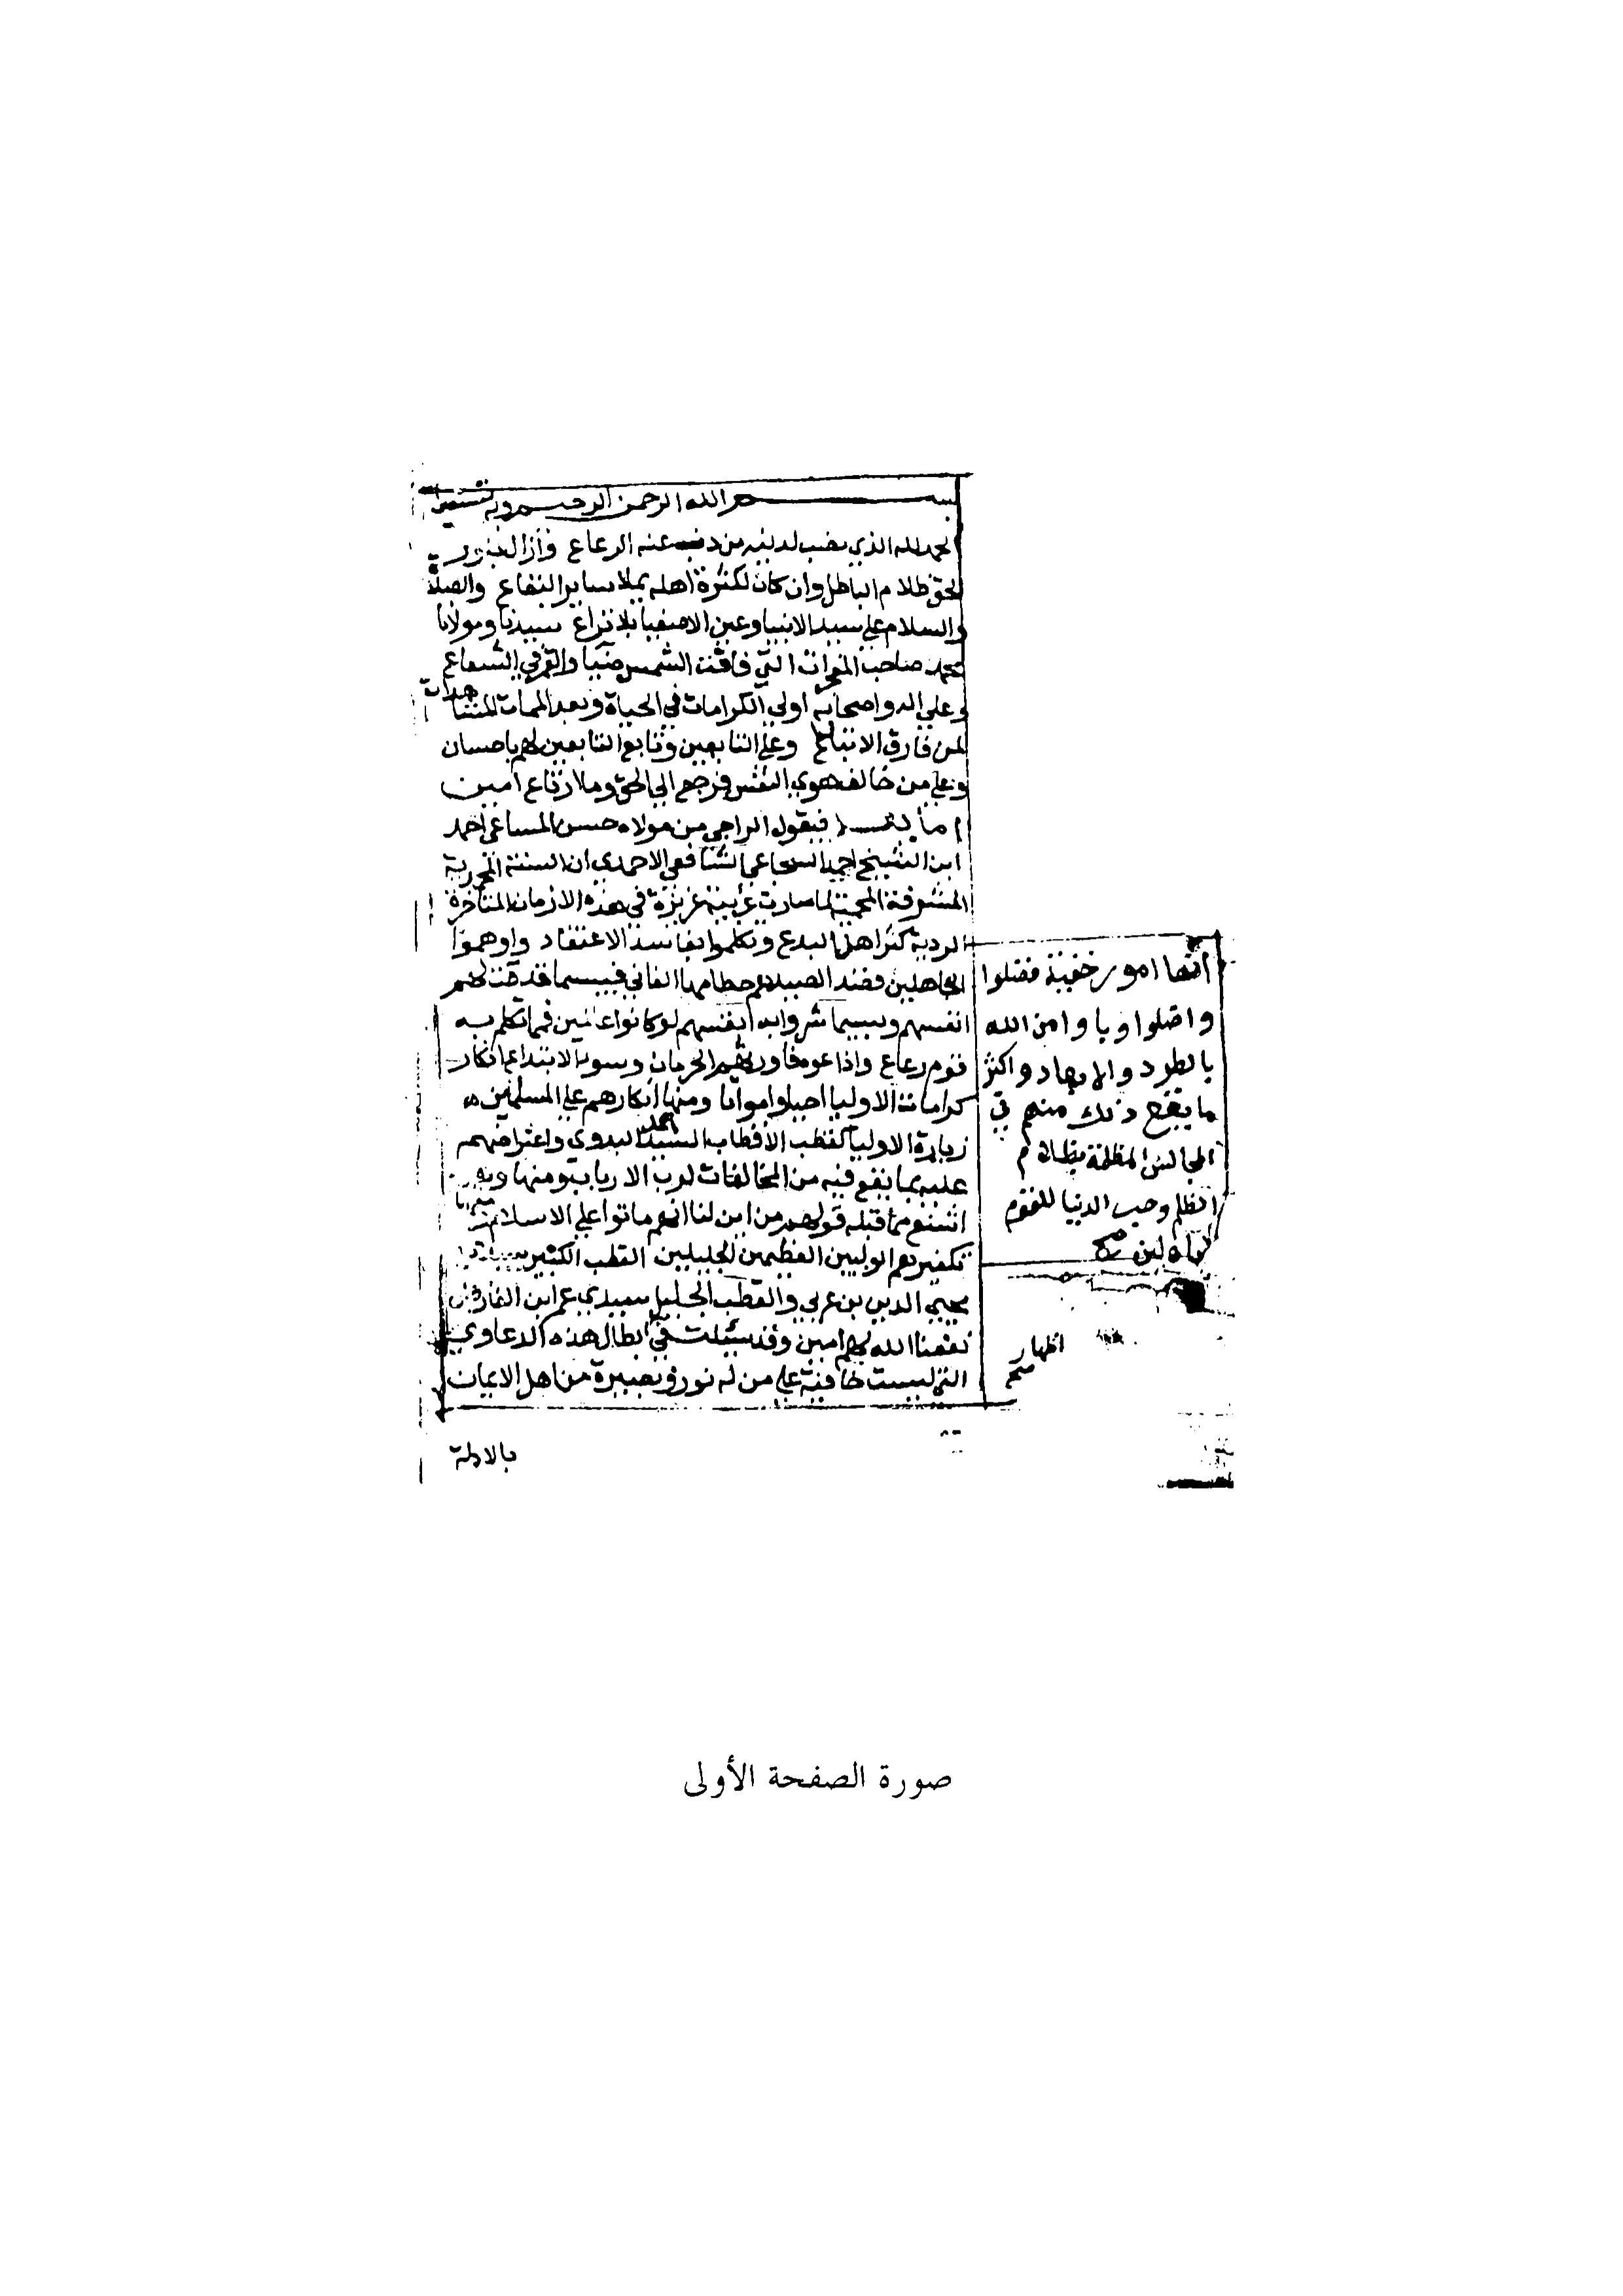 بسم الله الرحمن الرحيم وبه نستعين
الحمد لله الذي نصب لدينه من ذب عنه الرعاع وأزال بنور
الحق ظلام الباطل وان كان لكثرة اهله يملا ساير البقاع والصلاة
والسلام علي سيد الانبيا وعين الاصفيا بلا نزاع سيدنا ومولانا
محمد صاحب المعجزات التي فاقت الشمس ضيا والقمر في الشعاع
وعلي اله واصحابه اولي الكرامات في الحياة وبعد الممات المشاهدات
لمن فارق الابتداع وعلي التابعين وتابع التابعين لهم باحسان
وعلي من خالف هوي النفس فرجع الي الحق وما ارتاع امين
اما بعد فيقول الراجي من مولاه حسن المساعي احمد
ابن الشيخ احمد السجاعي الشافعي الاحمدي ان السنة المحمدية
المشرفة المحمية لما صارت غريبة عزيزة في هذه الازمان المتأخرة
الردية كثر اهل البدع وتكلموا بفاسد الاعتقاد واوهموا
الجاهلين قصد الصيد حطامها الفاني فبيسما قدمت لهم
انفسهم وبيسما شروا به انفسهم لو كانوا عالمين فما تكلم به
قوم رعاع واذاعوه فاورثهم الحرمان وسوء الابتداع انكار
كرامات الاوليا احيا وامواتا ومنها انكارهم علي المسلمين
زيارة الاوليا كقطب الاقطاب السيد احمد البدوي واعتراضهم
عليه بما يقع فيه من المخالفات لرب الارباب ومنها وهو
اشنع مما قبله قولهم من اين لنا انهم ماتوا علي الاسلام ومنها
تكفيرهم الوليين العظيمين الجليلين القطب الكبير سيدي
محيي الدين بن عربي والقطب الجليل سيدي عمر ابن الفارض
نفعنا الله بهم امين وقد سيلت في ابطال هذه الدعاوي
التي ليست خافية علي من له نور وبصيرة من اهل الايمان
بالادلة
انها امور خفية فضلوا
واضلوا وباوا من الله
بالطرد والابعاد واكثر
ما يقع ذلك منهم في
المجالس المظلمة بظلام
الظلم وحب الدنيا للقوم
صح
اظهار
صح
صورة الصفحة الأولى